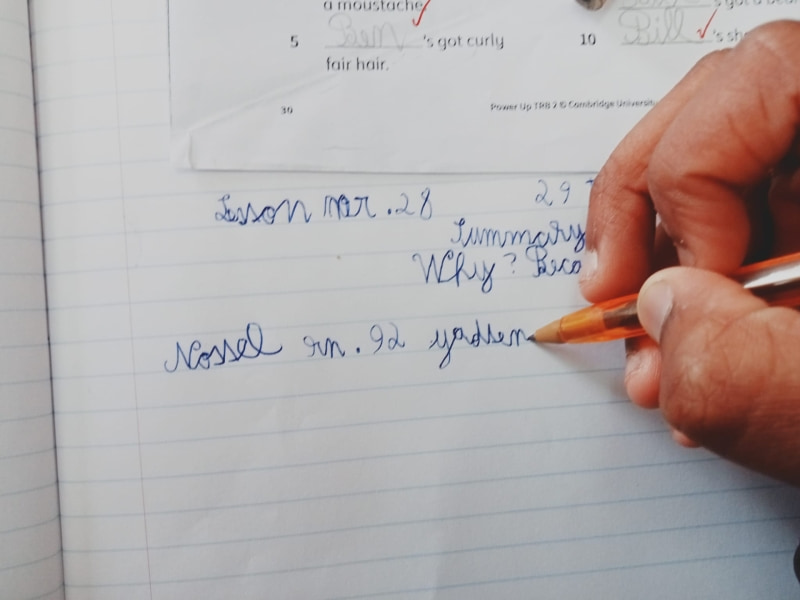 a moustache
5 Ben 's got curly
fair hair.
's got a bear
10 Bill 's sh
30
Power Up TRB 2 © Cambridge University
Lesson Nr. 28 29
Summary
Why? Beca
Nossel rn. 92 yadsen